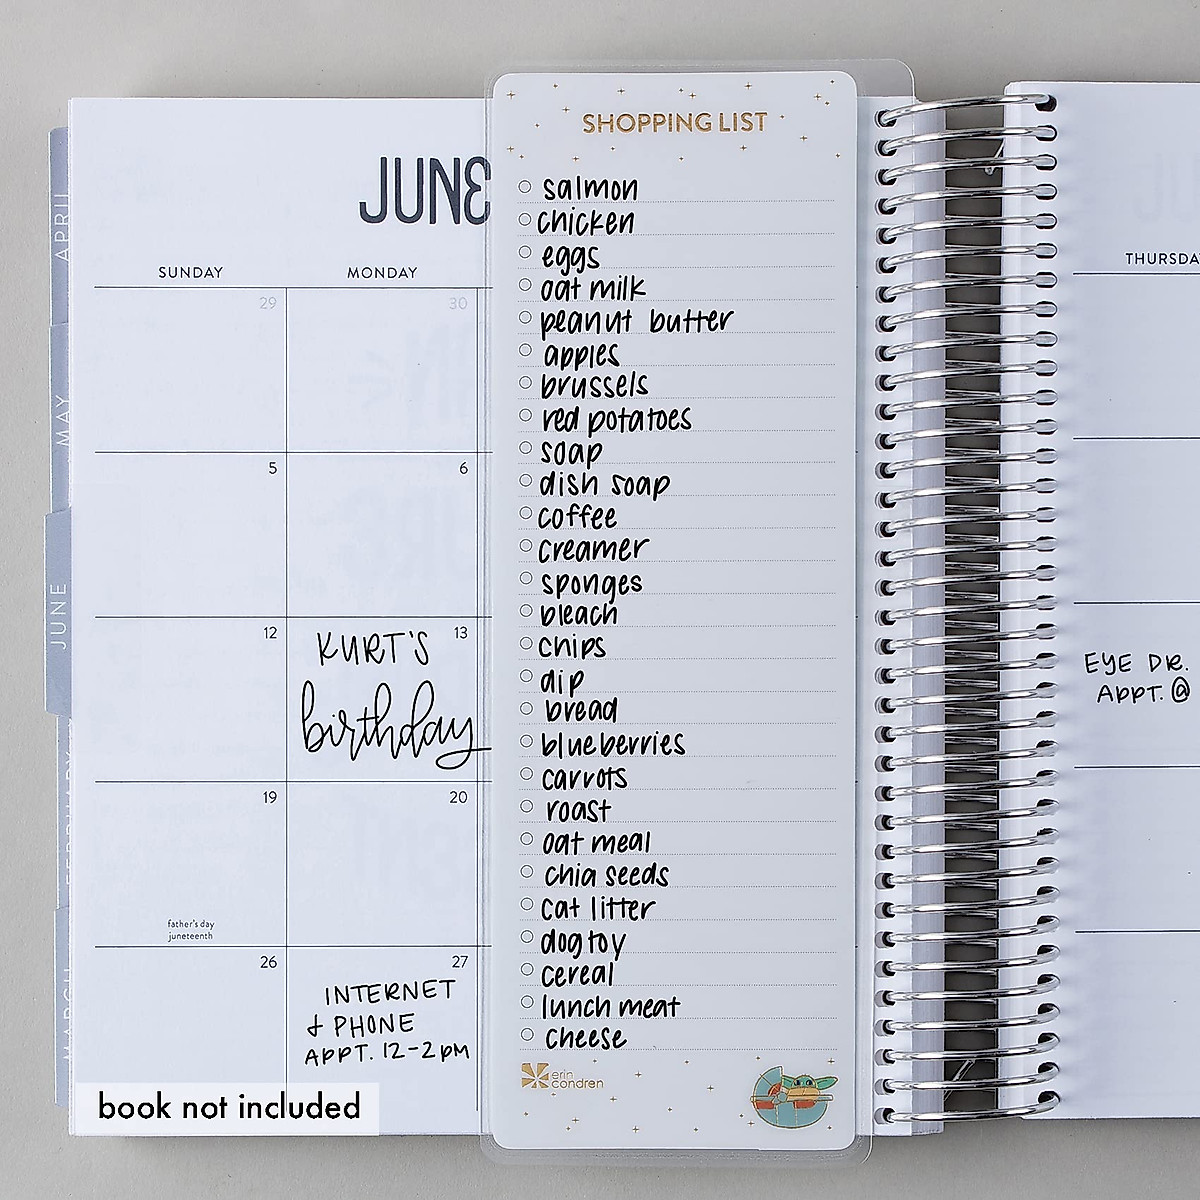 SHOPPING LIST
salmon
chicken
eggs
oat milk
peanut butter
apples
brussels
red potatoes
soap
dish soap
coffee
creamer
sponges
bleach
chips
dip
bread
blueberries
carrots
roast
oat meal
chia seeds
cat litter
dog toy
cereal
lunch meat
cheese
erin
condren
JUNE
SUNDAY MONDAY
29 30
5 6
12 13
KURT'S
birthday
19 20
father's day
juneteenth
26 27
INTERNET
& PHONE
APPT. 12-2PM
THURSDAY
EYE DR.
APPT. @
APRIL
MAY
JUNE
FEBRUARY
MARCH
book not included